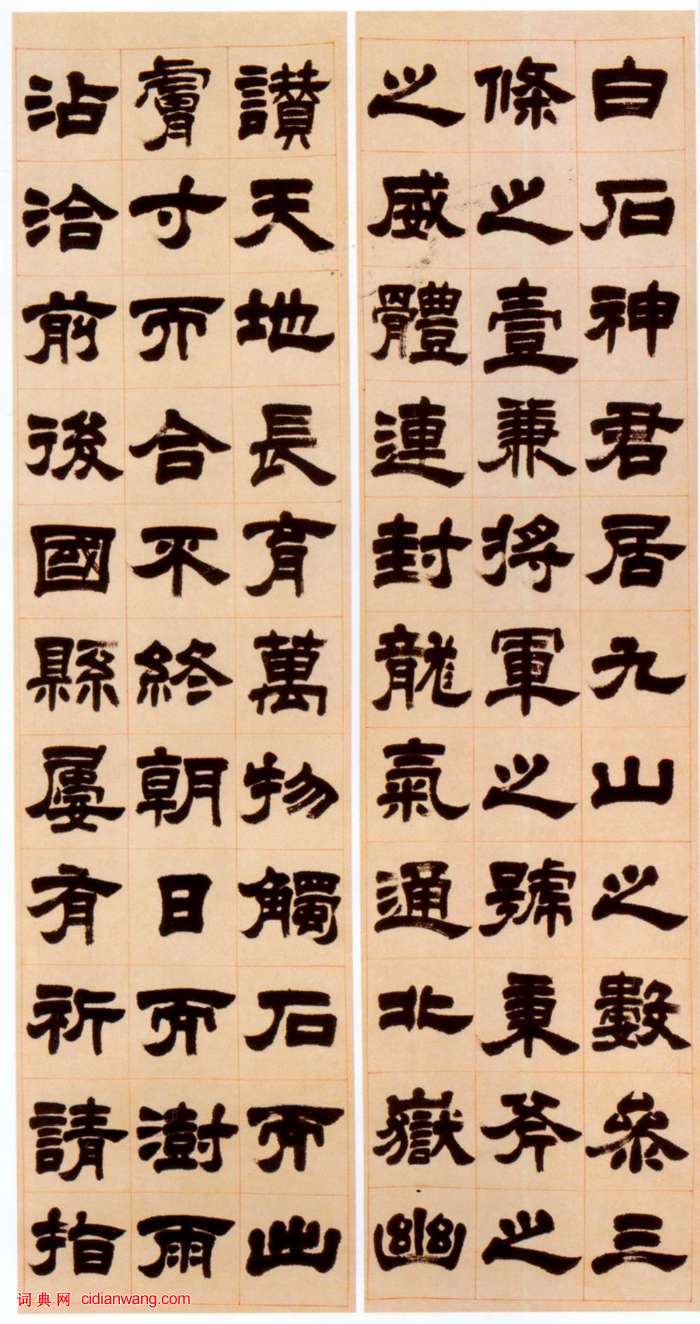 白石神君居九山之數參三
條之壹兼將軍之號秉斧之
之威體連封龍氣通北嶽幽
讃天地長育萬物觸石而出
膚寸而合不終朝日而澍雨
沾洽前後國縣屢有祈請指
词典网 cidianwang.com